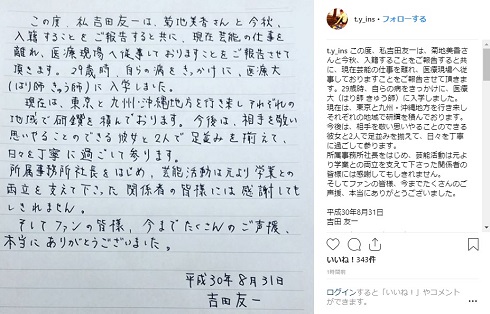 この度、私吉田友一は、菊地美香さんと今秋、
入籍することをご報告すると共に、現在芸能の仕事を
離れ、医療現場へ従事しておりますことをご報告させて
頂きます。29歳時、自らの病をきっかけに、医療大
(はり師 きゅう師)に入学しました。
現在は、東京と九州・沖縄地方を行き来しそれぞれの
地域で研鑽を積んでおります。今後は、相手を敬い
思いやることのできる彼女と2人で足並みを揃えて、
日々を丁寧に過ごして参ります。
所属事務所社長をはじめ、芸能活動は元より学業との
両立を支えて下さった関係者の皆様には感謝しても
しきれません。
そしてファンの皆様、今までたくさんのご声援、
本当にありがとうございました。
平成30年8月31日
吉田友一
t.y_ins • フォローする
t.y_ins この度、私吉田友一は、菊地美香さ
んと今秋、入籍することをご報告すると共
に、現在芸能の仕事を離れ、医療現場へ従
事しておりますことをご報告させて頂きま
す。29歳時、自らの病をきっかけに、医療
大（はり師 きゅう師）に入学しました。
現在は、東京と九州・沖縄地方を行き来し
それぞれの地域で研鑽を積んでおります。
今後は、相手を敬い思いやることのできる
彼女と2人で足並みを揃えて、日々を丁寧
に過ごして参ります。
所属事務所社長をはじめ、芸能活動は元よ
り学業との両立を支えて下さった関係者の
皆様には感謝してもしきれません。
そしてファンの皆様、今までたくさんのご
声援、本当にありがとうございました。
平成30年8月31日
吉田 友一
いいね！343件
1時間前
ログインすると「いいね！」やコメント
ができます。